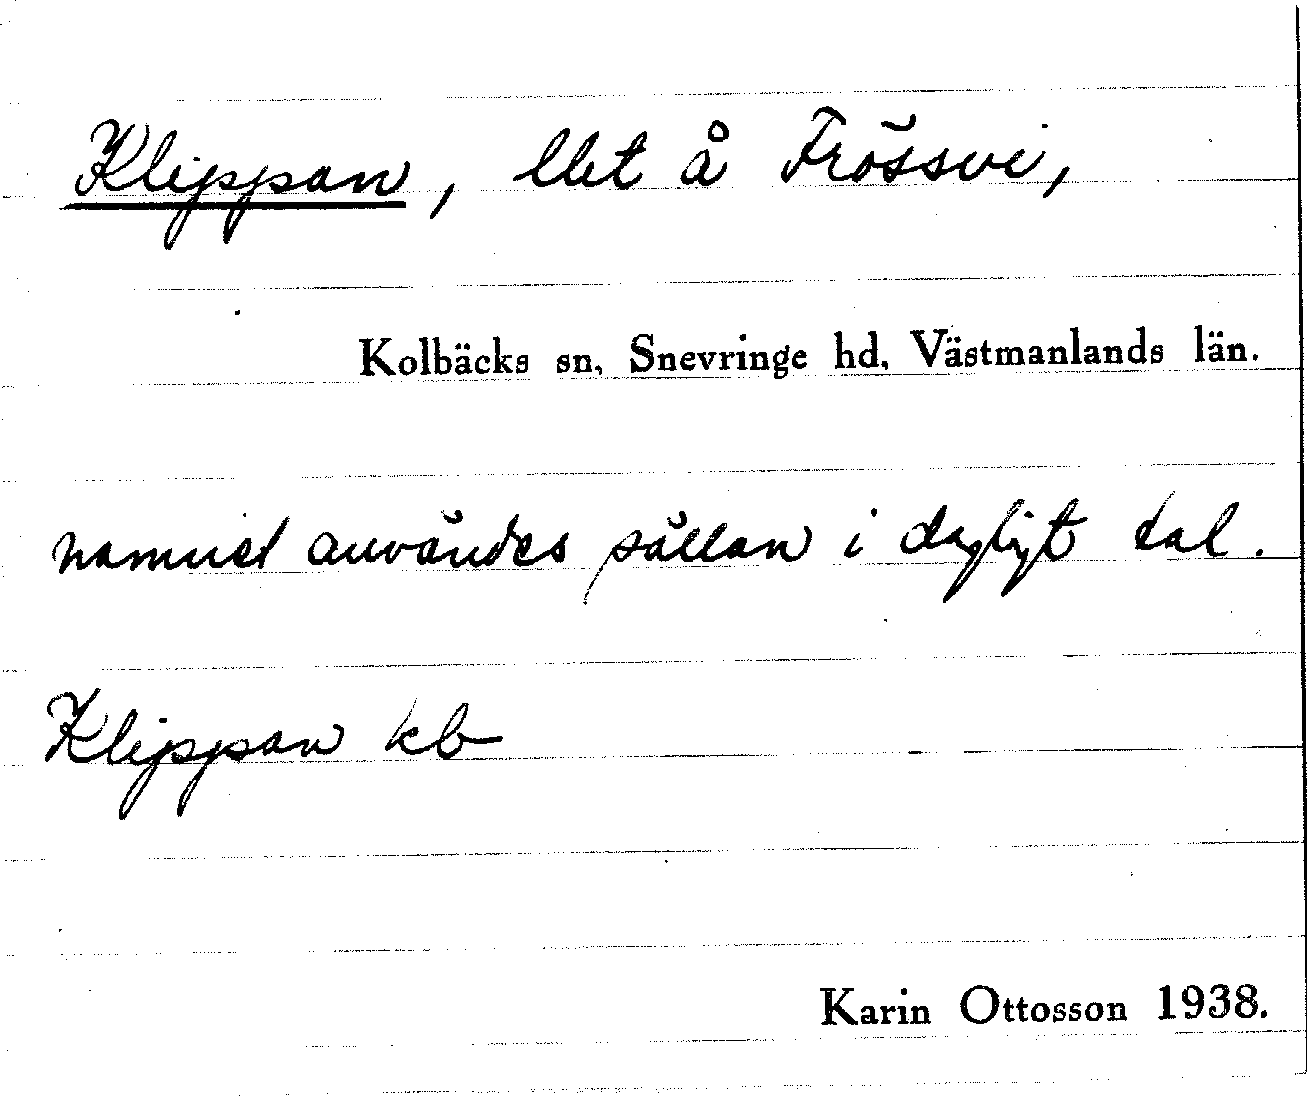 Klippan, llet å Frössvi,
Kolbäcks sn, Snevringe hd, Västmanlands län.
namnet användes sällan i dagligt tal.
Klippan kb
Karin Ottosson 1938.